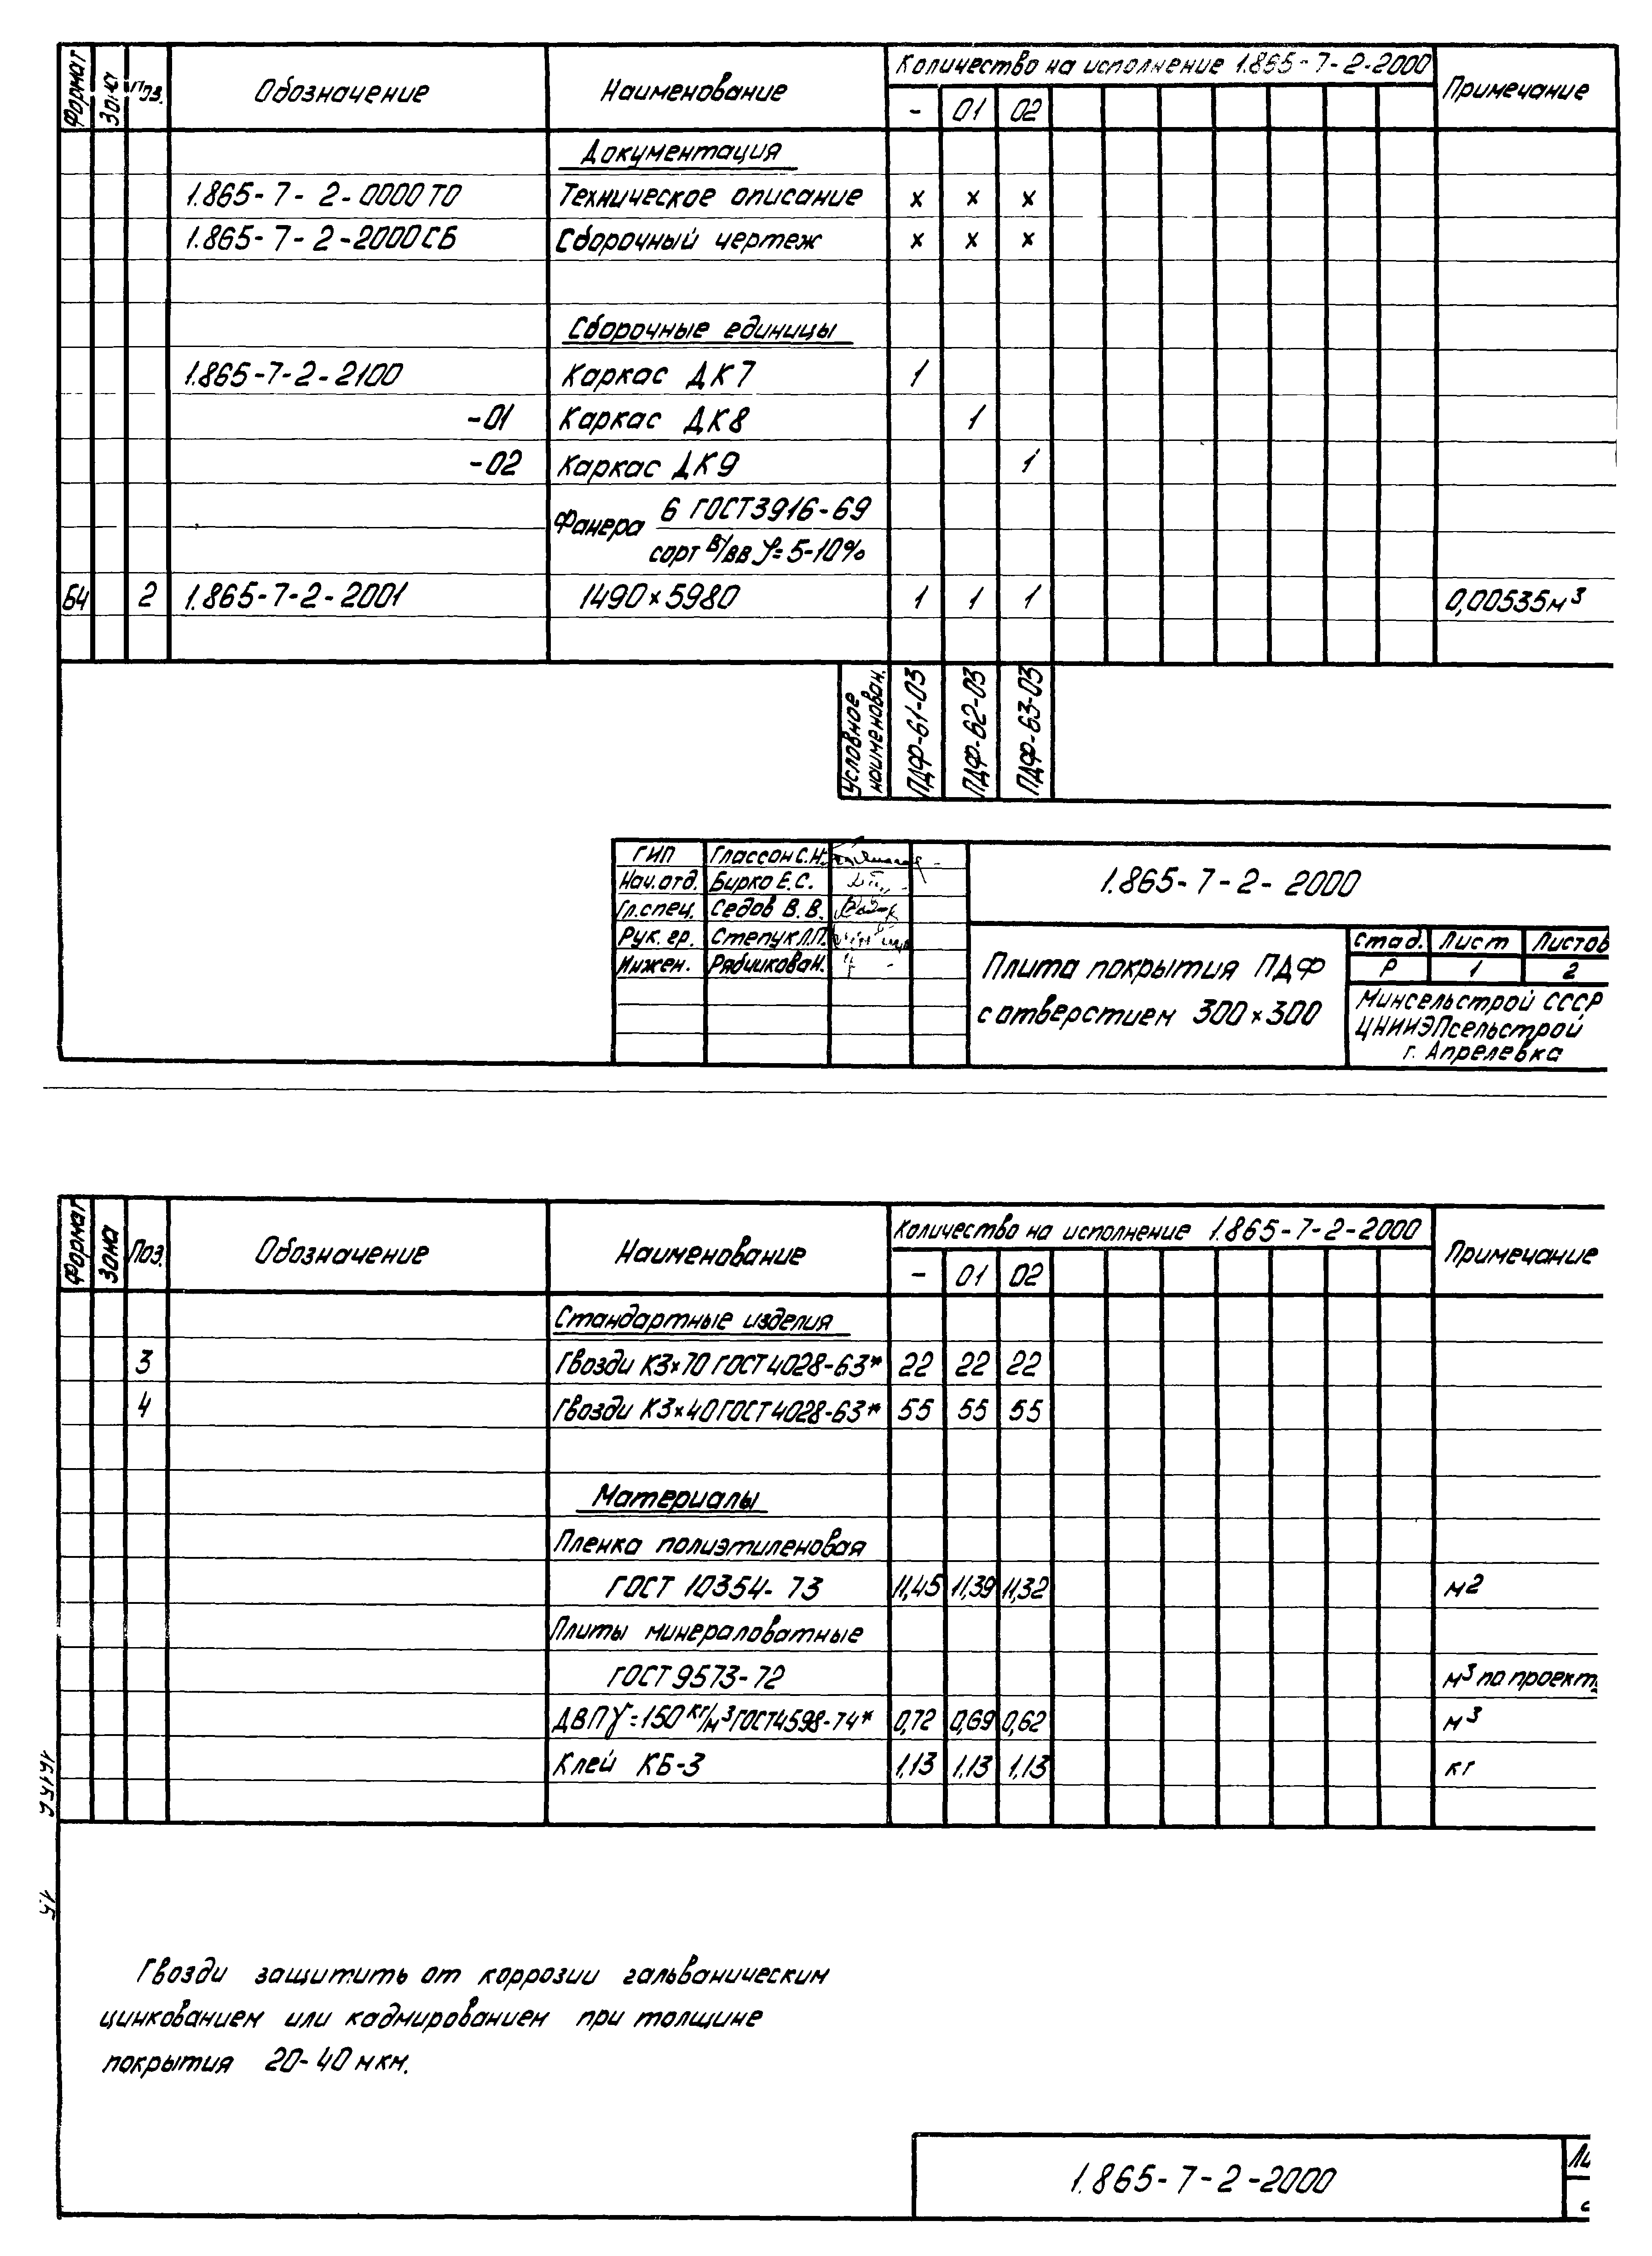 Формат Зона Поз. Обозначение Наименование Количество на исполнение 1.865-7-2-2000 Примечание
- 01 02
Документация
1.865-7-2-0000 ТО Техническое описание х х х
1.865-7-2-2000 СБ Сборочный чертеж х х х
Сборочные единицы
1.865-7-2-2100 Каркас ДК7 1
-01 Каркас ДК8 1
-02 Каркас ДК9 1
Фанера 6 ГОСТ 3916-69
сорт В/ВВ φ=5-10%
Б4 2 1.865-7-2-2001 1490×5980 1 1 1 0,00535м³
Условное наименован. ПДФ-61-03 ПДФ-62-03 ПДФ-63-03
ГИП Глассон С.Н.
Нач.отд. Бирко Е.С.
Гл.спец. Седов В.В.
Рук. гр. Степук Л.П.
Инжен. Рябчикова Н.
1.865-7-2-2000
Плита покрытия ПДФ
с отверстием 300×300
Стад. Лист Листов
Р 1 2
Минсельстрой СССР
ЦНИИЭПсельстрой
г. Апрелевка
Формат Зона Поз. Обозначение Наименование Количество на исполнение 1.865-7-2-2000 Примечание
- 01 02
Стандартные изделия
3 Гвозди К3×70 ГОСТ 4028-63* 22 22 22
4 Гвозди К3×40 ГОСТ 4028-63* 55 55 55
Материалы
Пленка полиэтиленовая
ГОСТ 10354-73 11,45 11,39 11,32 м2
Плиты минераловатные
ГОСТ 9573-72 м³ по проект.
ДВП γ=150 кг/м³ ГОСТ 4598-74* 0,72 0,69 0,62 м³
Клей КБ-3 1,13 1,13 1,13 кг
Гвозди защитить от коррозии гальваническим
цинкованием или кадмированием при толщине
покрытия 20-40 мкм.
1.865-7-2-2000